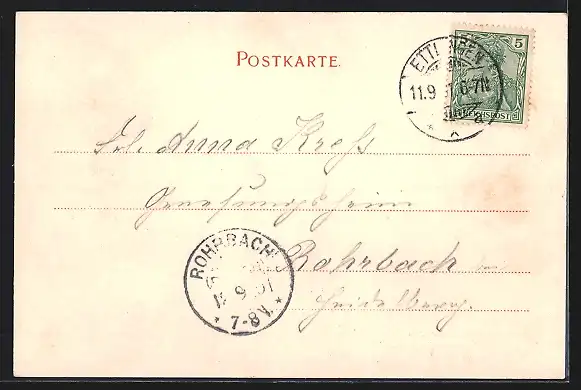 POSTKARTE.
ETTLINGEN
11.9 6-7N
5
REICHSPOST
Frl. Anna Kress
Genesungsheim
Rohrbach bei
Heidelberg.
ROHRBACH
12 9 01
7-8V.